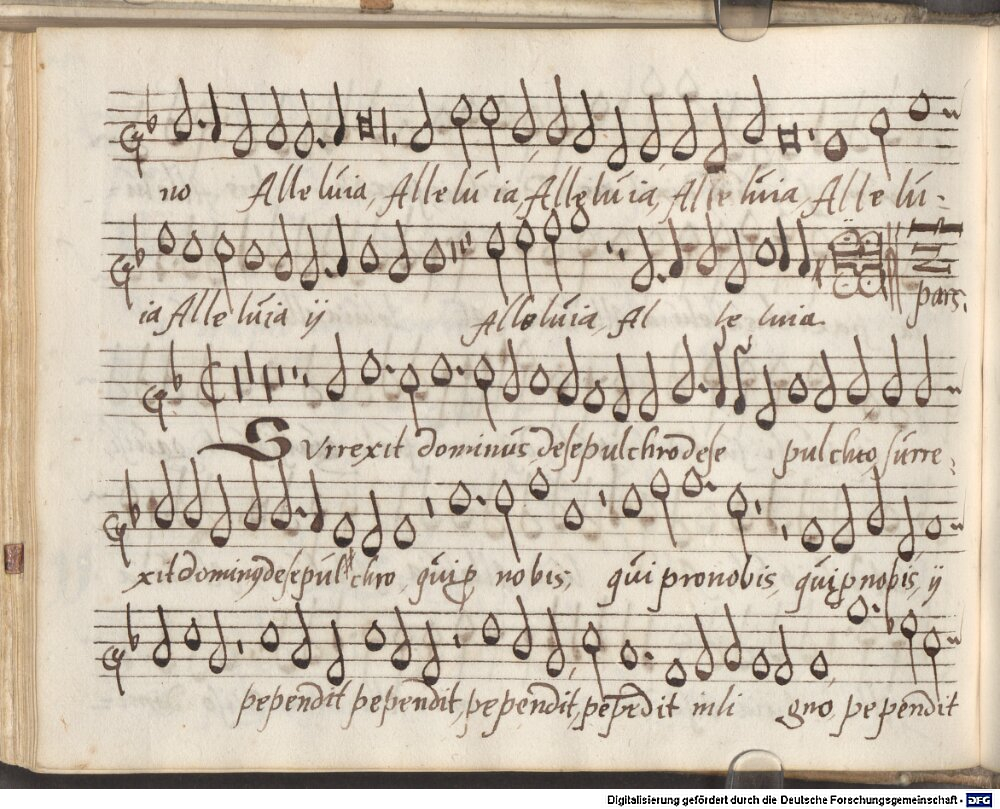 no Alleluia, Allelu ia, Alleluia, Alleluia, Allelu-
ia Alleluia ij Alleluia, Al le luia
pars.
Surrexit dominus, desepulchro dese pulchro, surre,
xit dominus desepul chro, qui p nobis, qui pro nobis, qui p nobis, ij
pependit pependit, pependit, pepedit in li gno, pependit
Digitalisierung gefördert durch die Deutsche Forschungsgemeinschaft - DFG